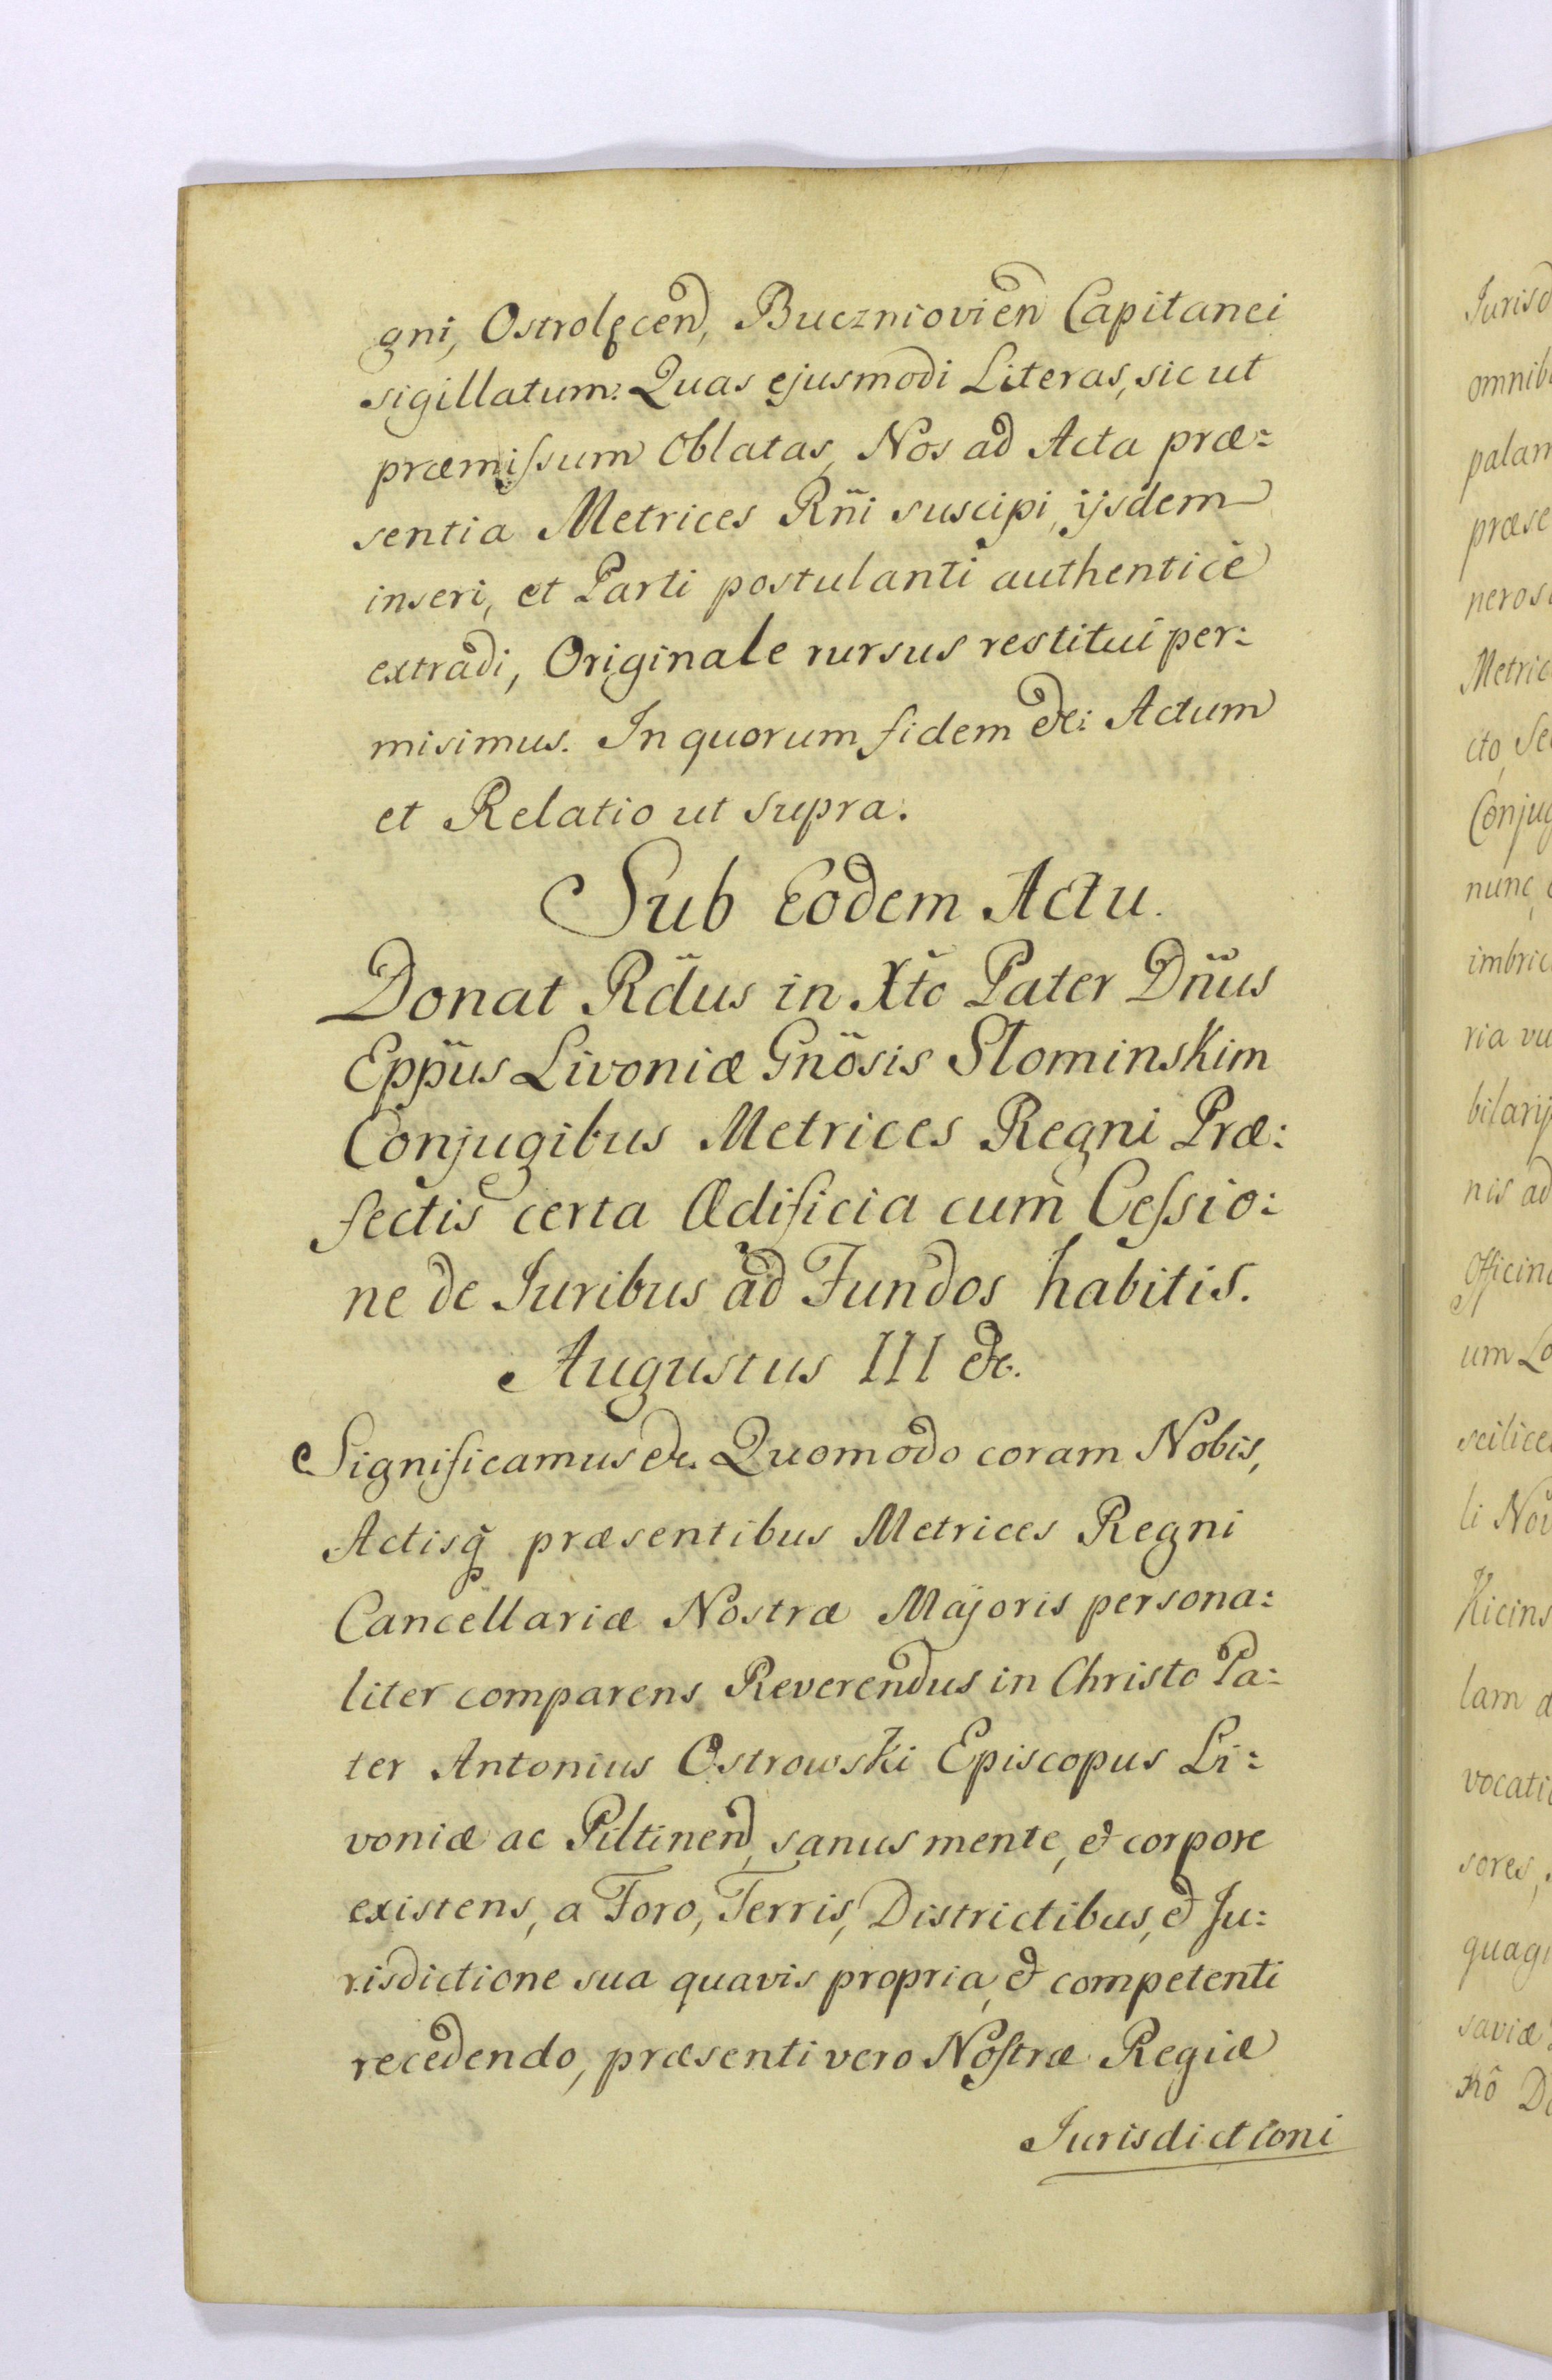 gni, Ostrolęcen̄, Buczniovien̄ Capitanei
sigillatum: Quas ejusmodi Literas, sic ut
præmiſsum Oblatas, Nos ad Acta præ:
sentia Metrices Rñi suscipi, ijsdem
inseri, et Parti postulanti authenticè
extradi, Originale rursus restitui per:
misimus. In quorum fidem &c: Actum
et Relatio ut supra.
Sub Eodem Actu.
Donat Rdūs in Xtō Pater Dñus
Eppūs Livoniæ Gnōsis Słominskim
Conjugibus Metrices Regni Præ:
fectis certa Ædificia cum Ceſsio:
ne de Iuribus ad Fundos habitis.
Augustus III &c.
Significamus &c. Quomodo coram Nobis,
Actisq̃ præsentibus Metrices Regni
Cancellariæ Nostræ Majoris persona:
liter comparens Reverendus in Christo Pa:
ter Antonius Ostrowski Episcopus Li:
voniæ ac Piltinen̄, sanus mente, & corpore
existens, a Foro, Terris, Districtibus, & Ju:
risdictione sua quavis propria, & competenti
recedendo, præsenti vero Noſtræ Regiæ
Iurisdictioni
Jurisd
omnib
palam
præse
neros
Metric
cto, Se
Conjug
nunc
imbric
ria vu
bilarij
nis ad
Officin
um Lo
scilice
li Nov
Kicins
lam
vocati
sores,
quag
saviæ